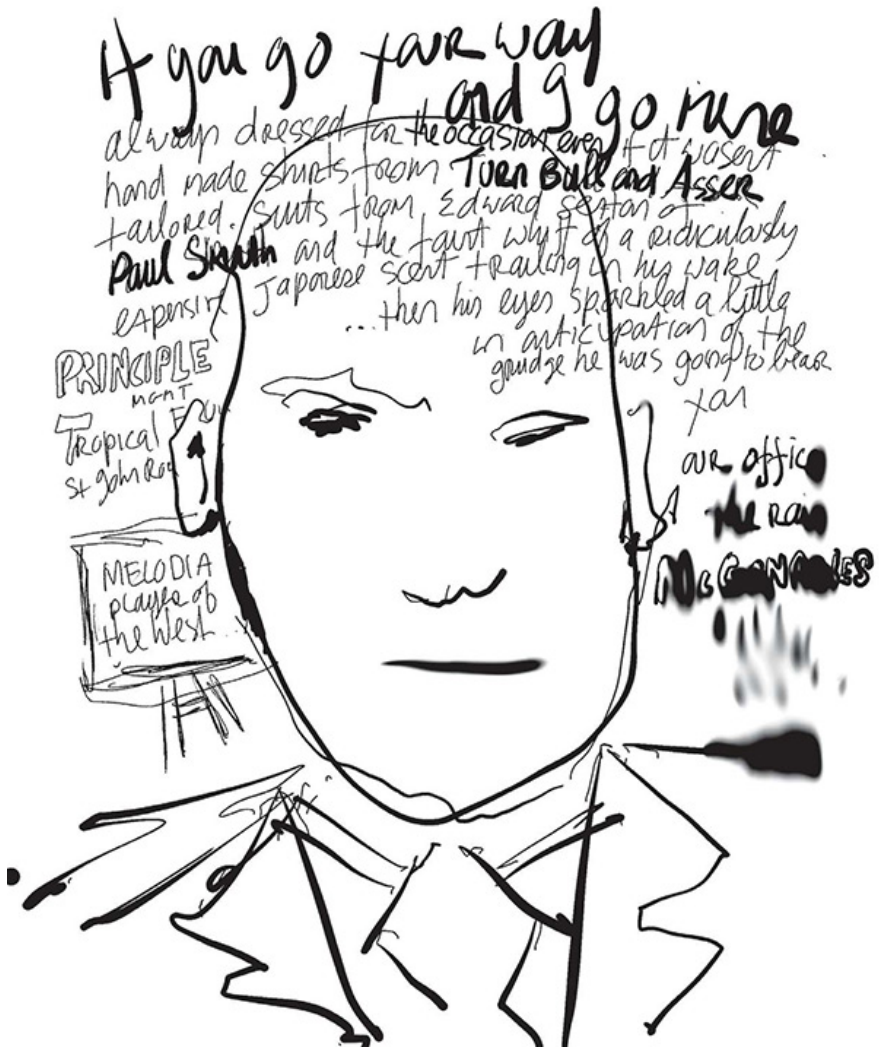 If you go your way
and I go mine
always dressed for the occasion even if it wasent
hand made shirts from Turn Bull and Asser
tailored suits from Edward Sexton of
Paul Smith and the faint whift of a ridiculously
expensive Japonese scent trailing in his wake
...then his eyes sparkled a little
in anticipation of the
grudge he was going to bear
you
PRINCIPLE
MGMT
Tropical
St John
MELODIA
player of
the West
our office
the rain
McGONAGLES